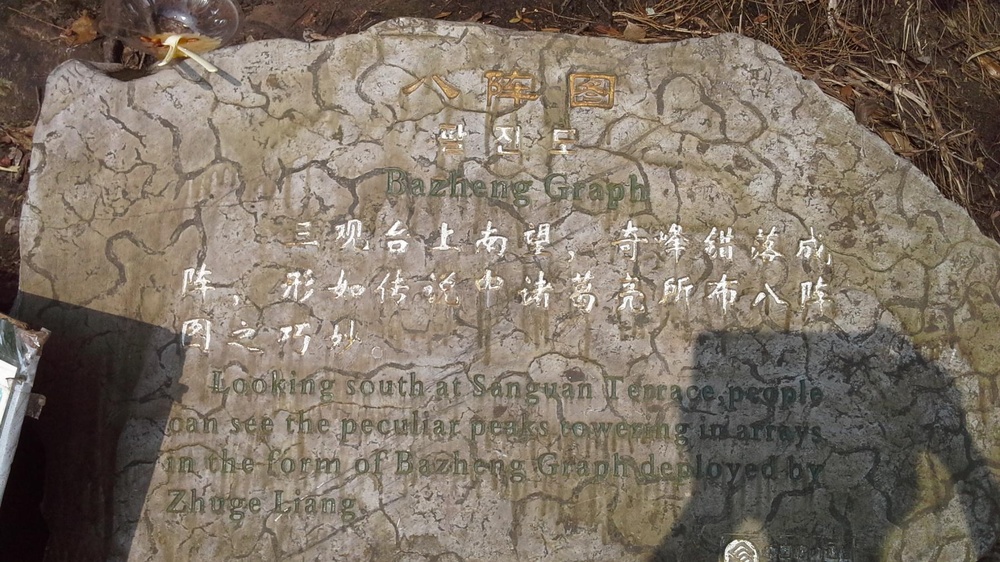 八阵图
팔진도
Bazheng Graph
三观台上南望，奇峰错落成
阵，形如传说中诸葛亮所布八阵
图之巧妙。
Looking south at Sanguan Terrace,people
can see the peculiar peaks towering in arrays
in the form of Bazheng Graph deployed by
Zhuge Liang